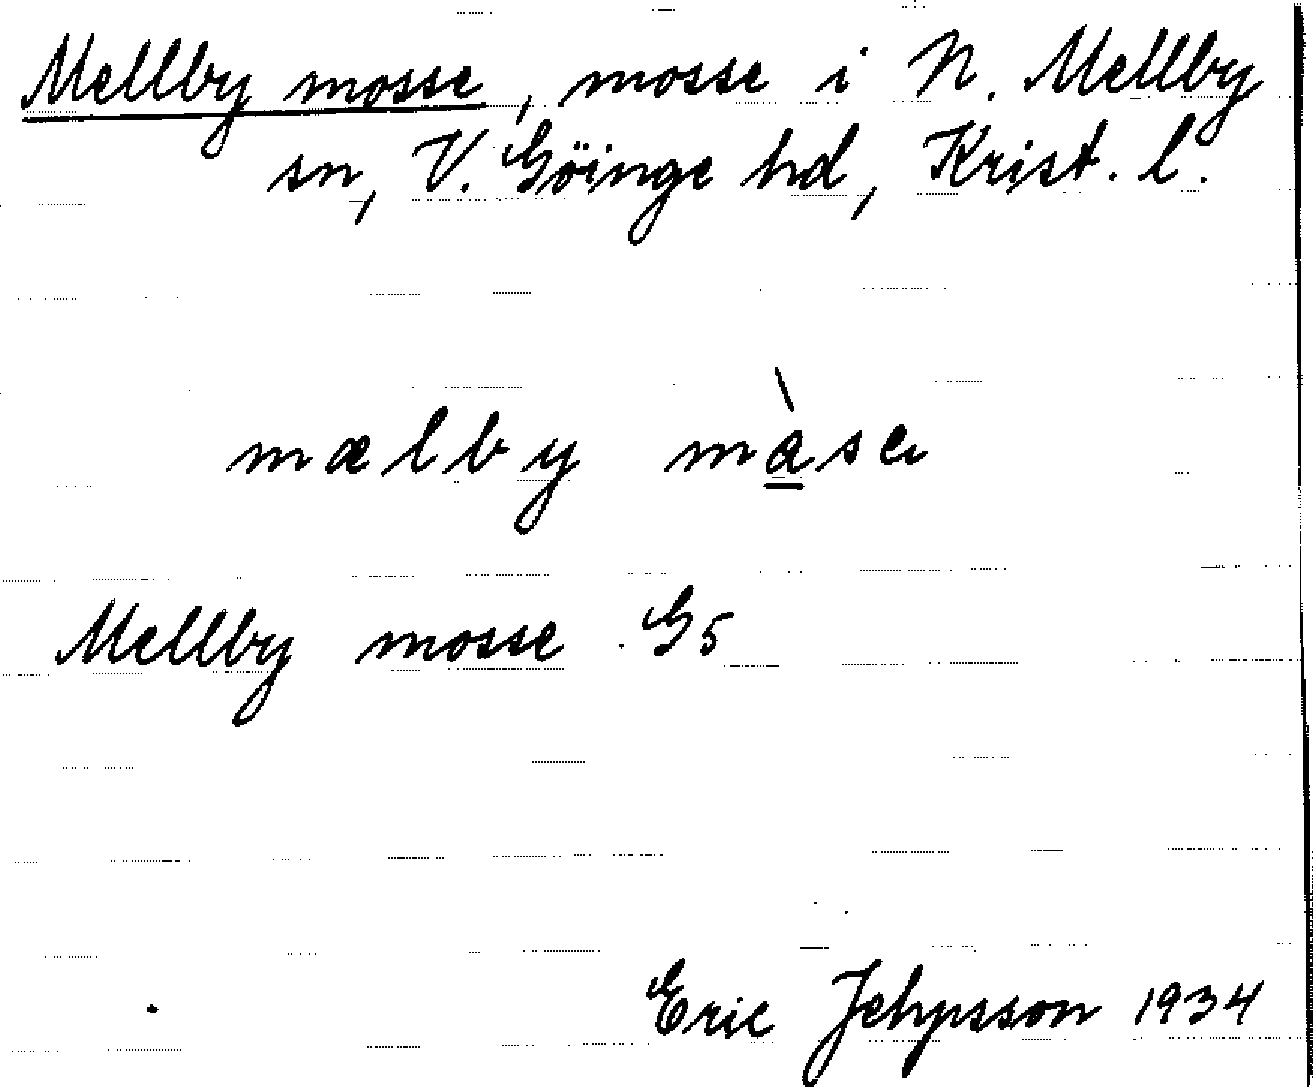 Mellby mosse, mosse i N. Mellby
sn, V. Göinge hd, Krist. l.
mælby màse
Mellby mosse G5
Eric Jehpsson 1934